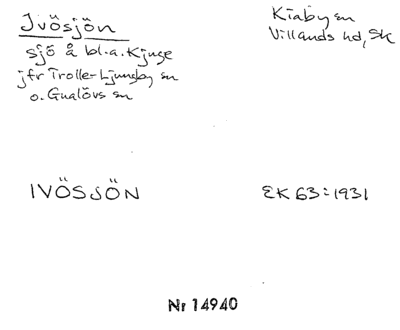 Ivösjön
sjö å bl.a. Kjuge
jfr Trolle-Ljungby sn
o. Gualövs sn
Kiaby sn
Villands hd, Sk
IVÖSJÖN
EK 63:1931
Nr 14940